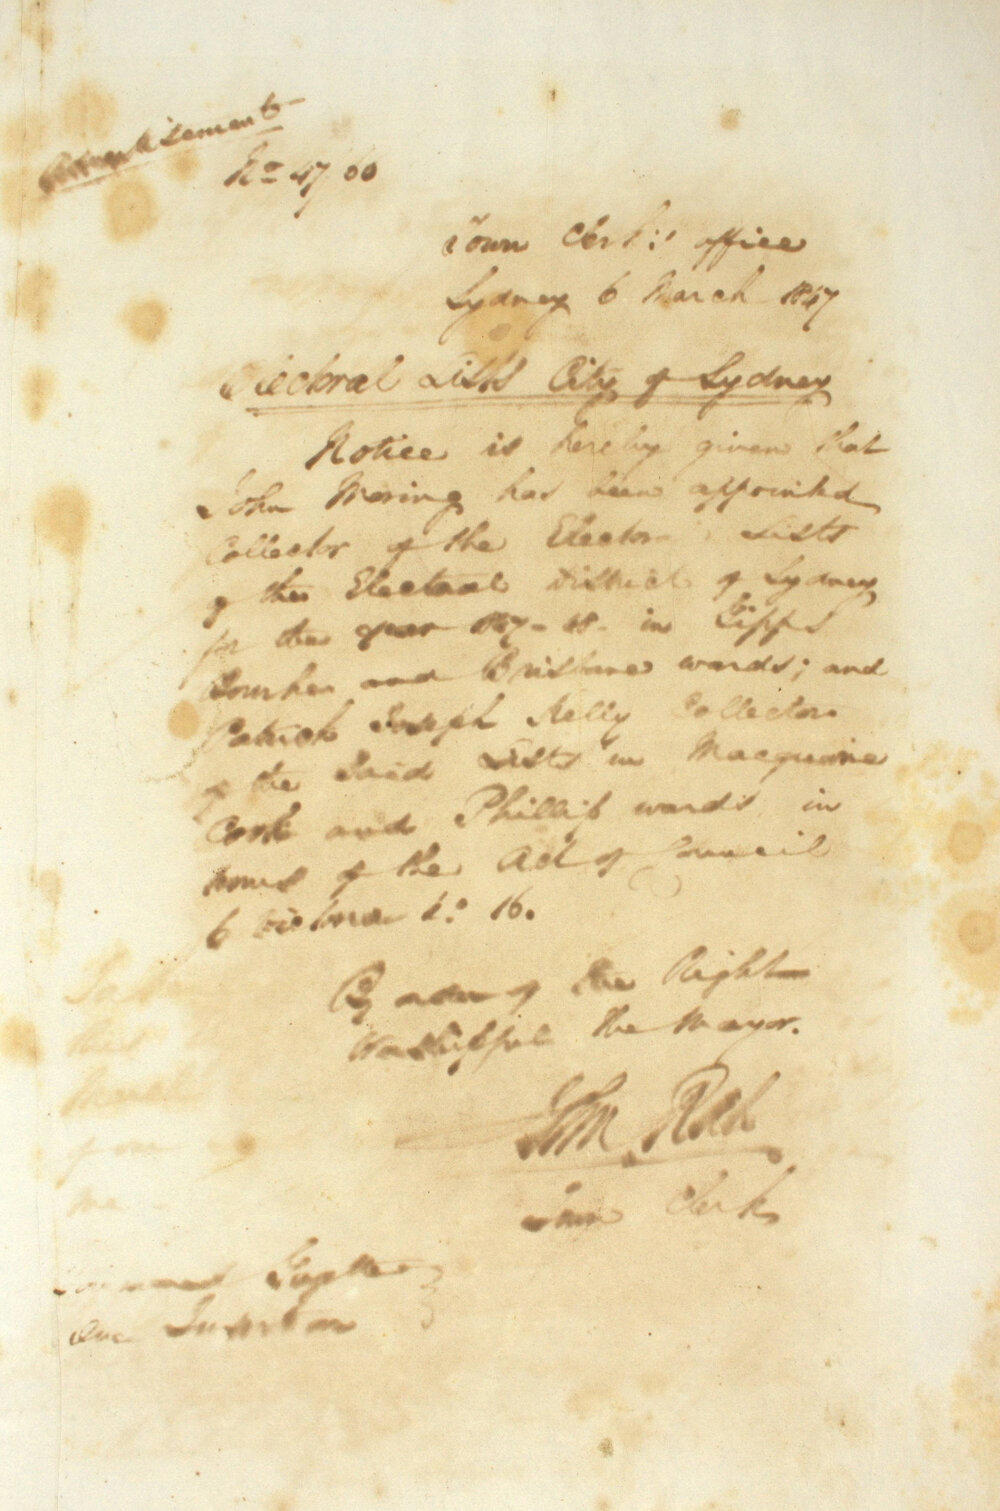 Advertisement
No 47/60
Town Clerk's office
Sydney 6 March 1847
Electoral Lists City of Sydney
Notice is hereby given that
John Mering has been appointed
Collector of the Elector Lists
of the Electoral District of Sydney
for the year 1847-48- in Gipps
Bourke and Brisbane wards; and
Patrick Joseph Kelly Collector
of the said Lists in Macquarie
Cook and Phillip wards in
terms of the Act of Council
6 Victoria No 16.
By order of the Right
Worshipful the Mayor.
John Rae
Town Clerk
March
from
me
One Insertion